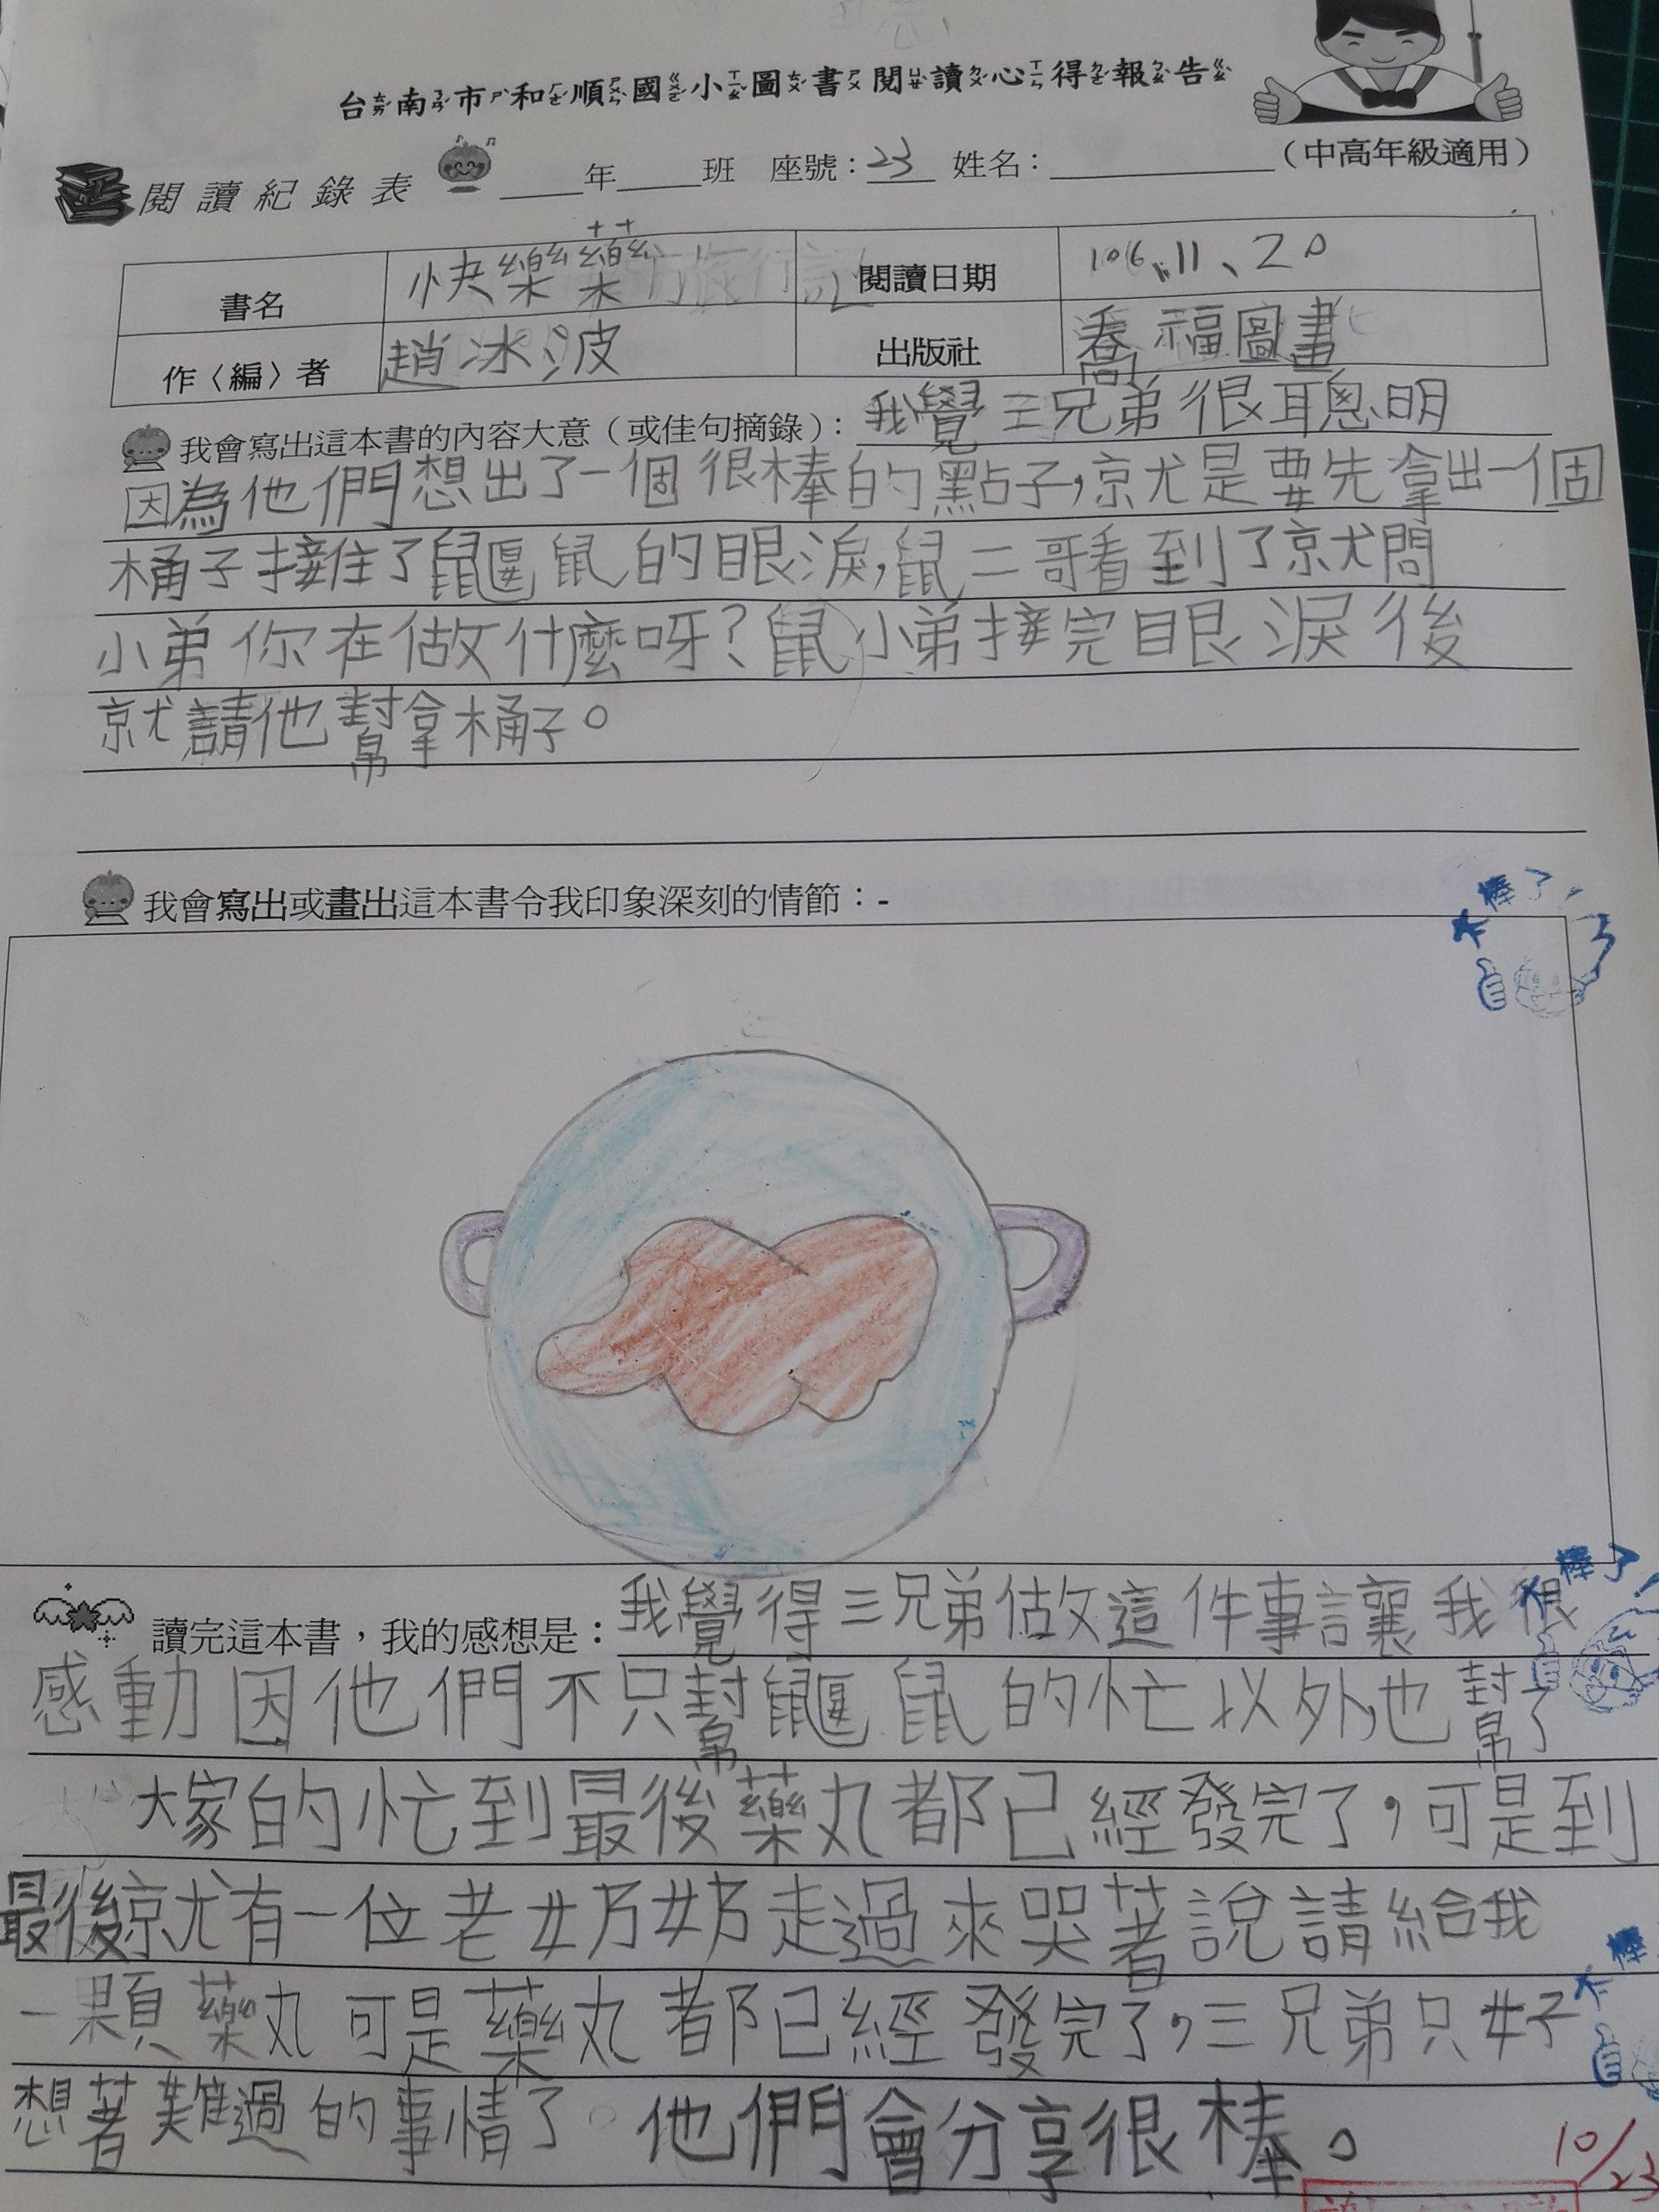 台南市和順國小圖書閱讀心得報告
閱讀紀錄表 ____年____班 座號：23 姓名：__________（中高年級適用）
書名 快樂藥 閱讀日期 106、11、20
作〈編〉者 趙冰波 出版社 喬福圖書
我會寫出這本書的內容大意（或佳句摘錄）：我覺三兄弟很聰明
因為他們想出了一個很棒的點子，就是要先拿出一個
桶子接住了鼴鼠的眼淚，鼠二哥看到了就問
小弟你在做什麼呀？鼠小弟接完眼淚後
就請他幫拿桶子。
我會寫出或畫出這本書令我印象深刻的情節：-
太棒了！
讀完這本書，我的感想是：我覺得三兄弟做這件事讓我很
感動因他們不只幫鼴鼠的忙以外，也幫了
大家的忙到最後藥丸都已經發完了，可是到
最後就有一位老奶奶走過來哭著說請給我
一顆藥丸可是藥丸都已經發完了，三兄弟只好
想著難過的事情了。他們會分享很棒。
太棒了！
太棒
10/23